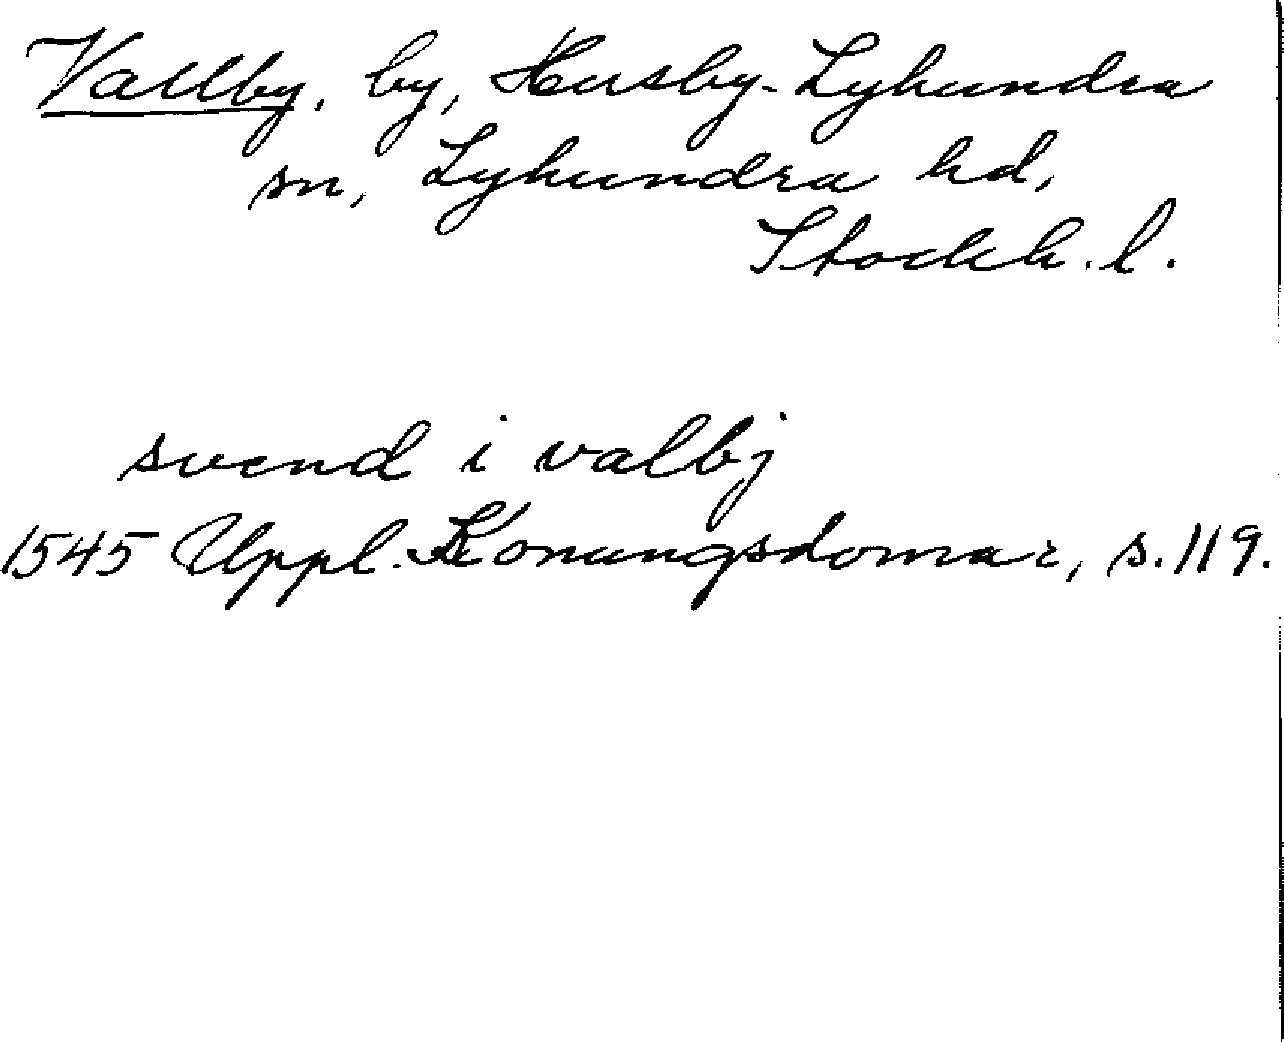 Vallby, by, Husby-Lyhundra
sn, Lyhundra hd,
Stockh. l.
svend i valbj
1545 Uppl. Konungsdomar, s. 119.